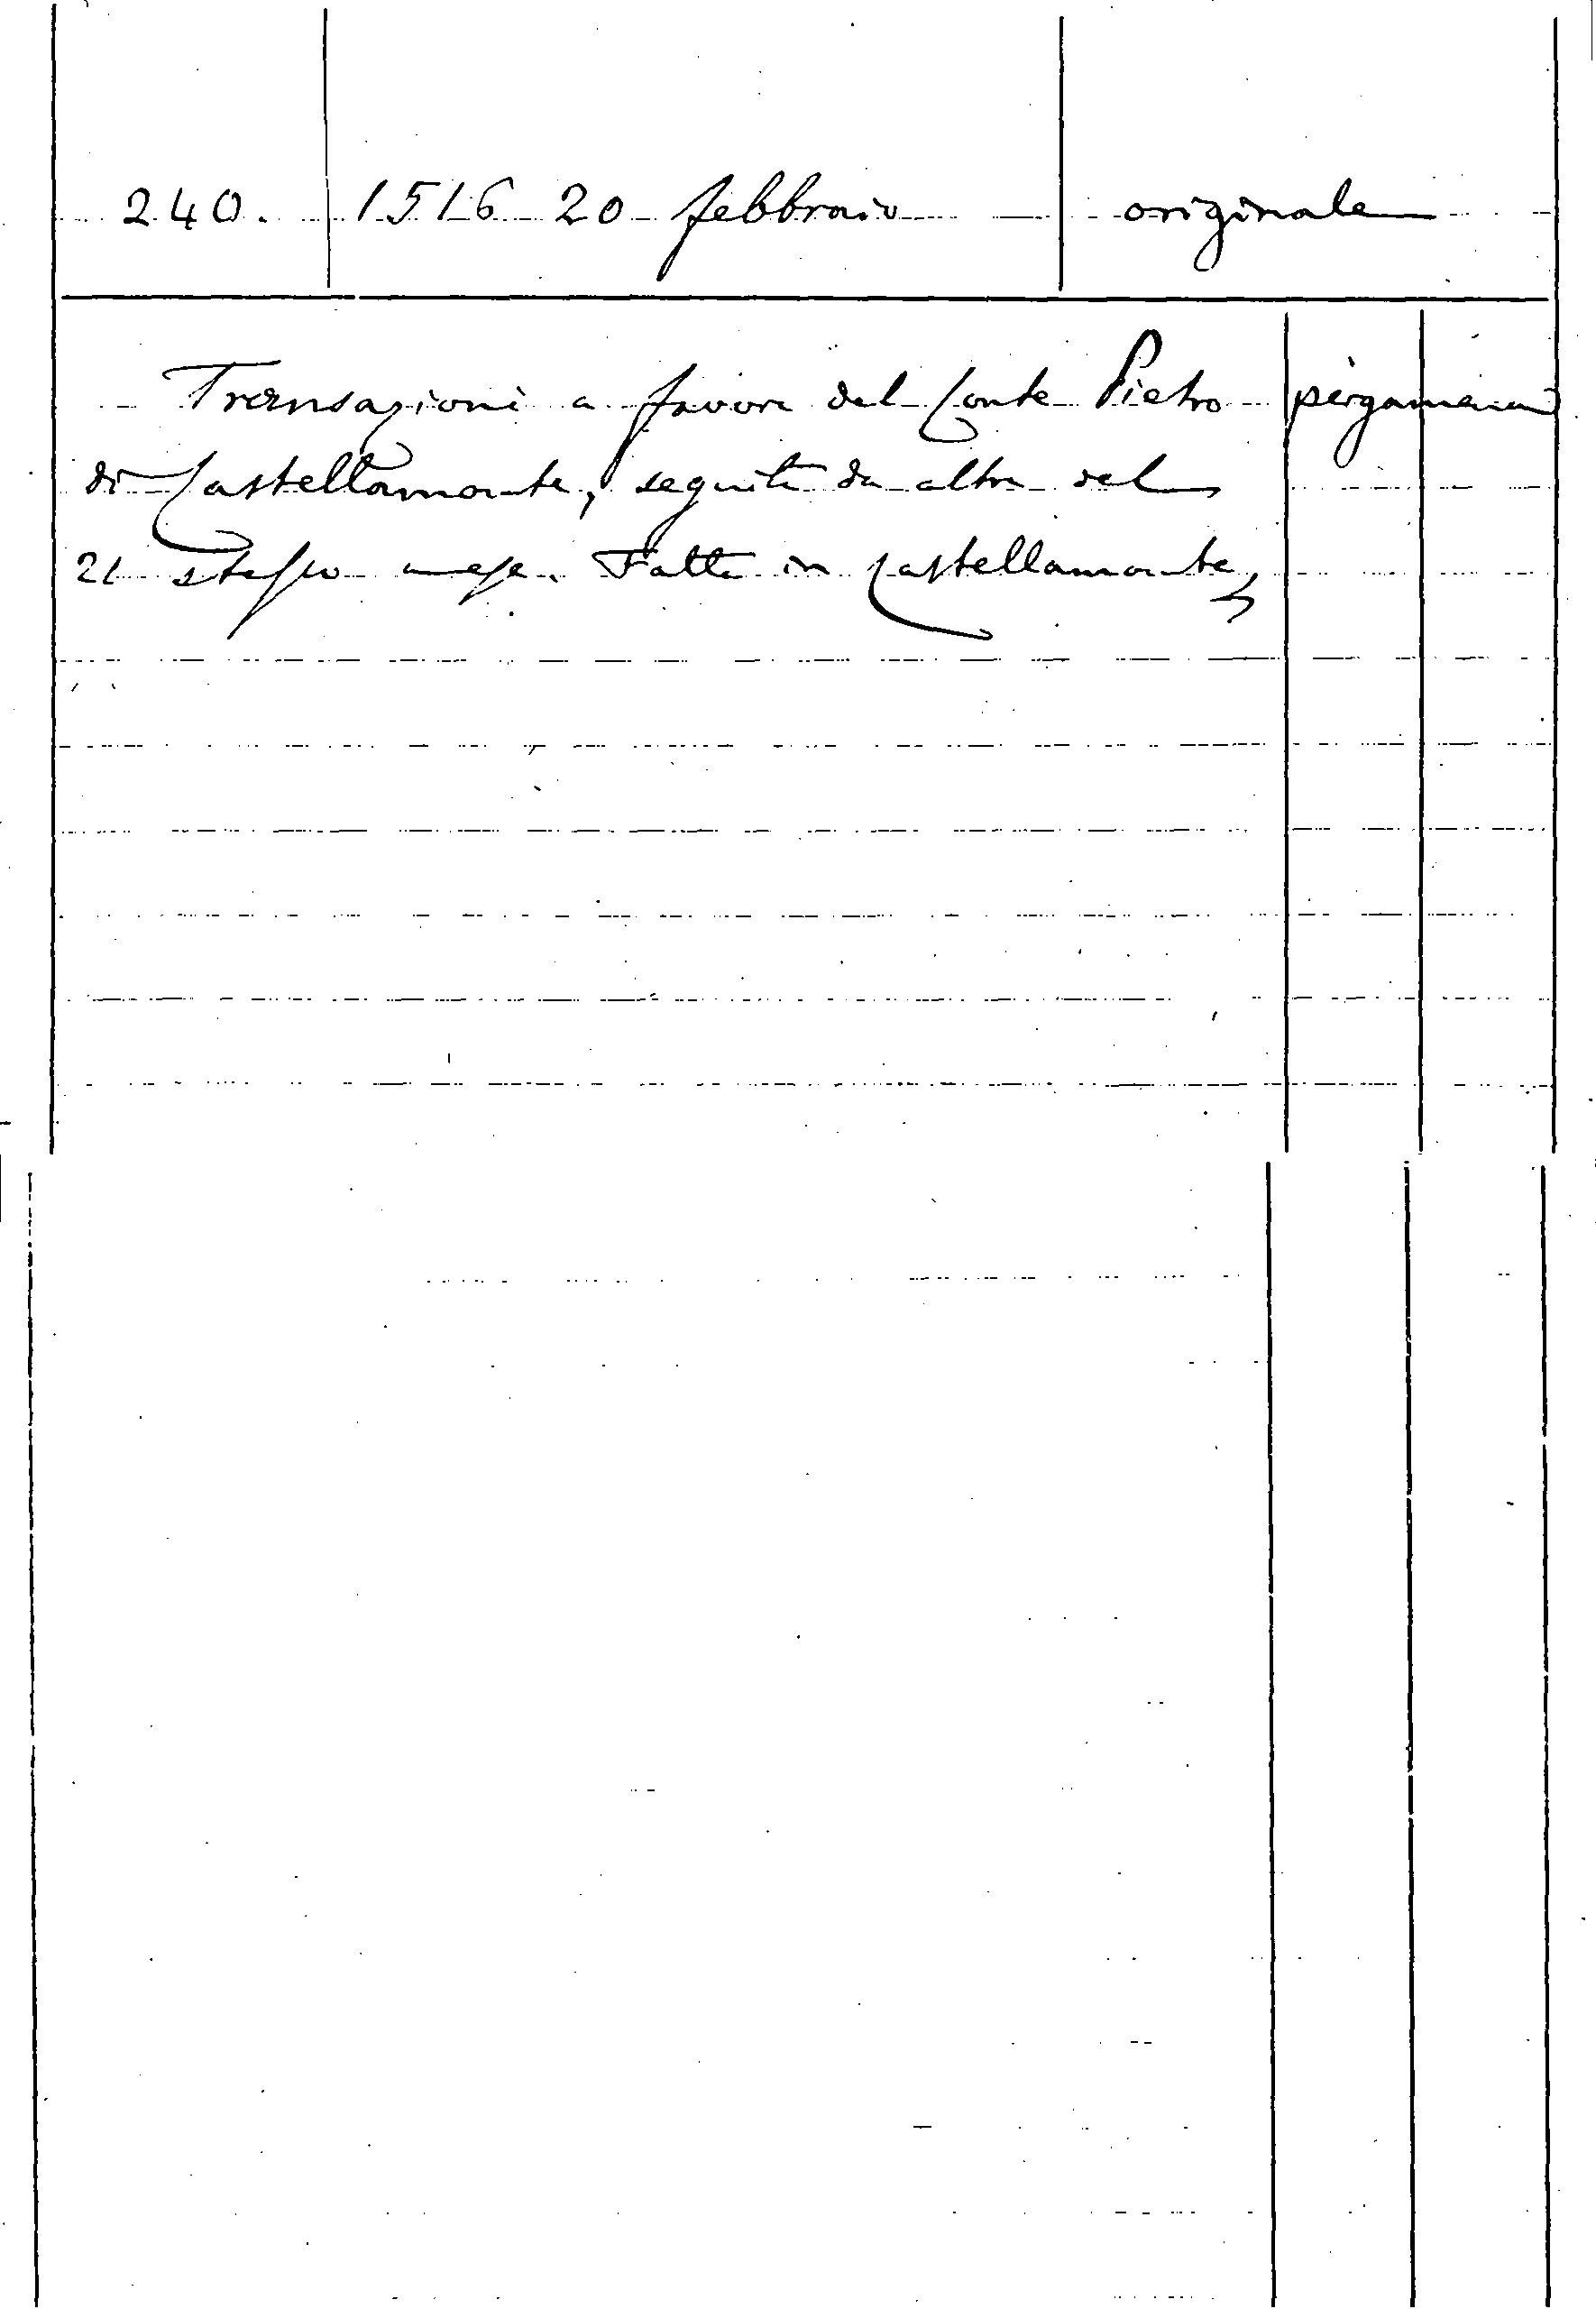 240. 1516 20 febbraio originale
Transazioni a favore del Conte Pietro pergamena
di Castellamonte, seguita da altra del
21 stesso mese. Fatta in Castellamonte